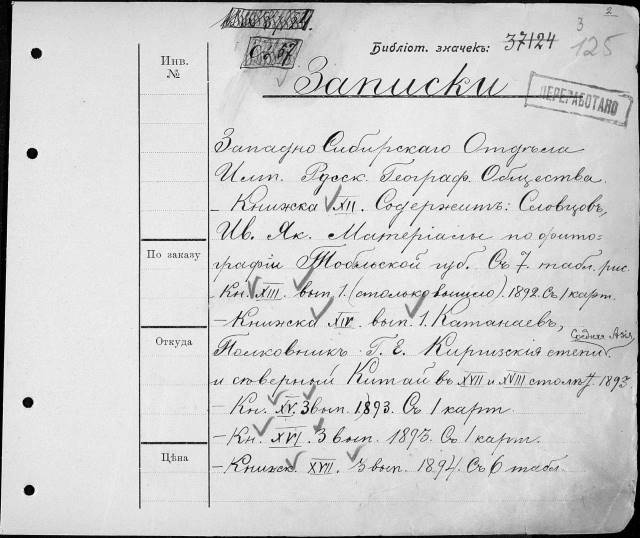 2
3
Библіот. значекъ: 37124
125
Записки
ПЕРЕРАБОТАНО
Инв.
№
Западно Сибирскаго Отдѣла
Имп. Русск. Географ. Общества.
– Книжка XII. Содержитъ: Словцовъ,
Ив. Як. Матеріалы по фито-
графіи Тобольской губ. Съ 7 табл. рис.
По заказу
Кн. XIII. вып 1. (столько вышло). 1892. Съ 1 карт.
– Книжка XIV. вып. 1. Катанаевъ,
Откуда
Средняя Азія
Полковникъ Г. Е. Киргизскія степи.
и сѣверный Китай въ XVII и XVIII столѣт. 1893
– Кн. XV. 3 вып. 1893. Съ 1 карт
– Кн. XVI. 3 вып. 1893. Съ 1 карт.
Цѣна
– Книжк. XVII. 3 вып. 1894. Съ 6 табл.